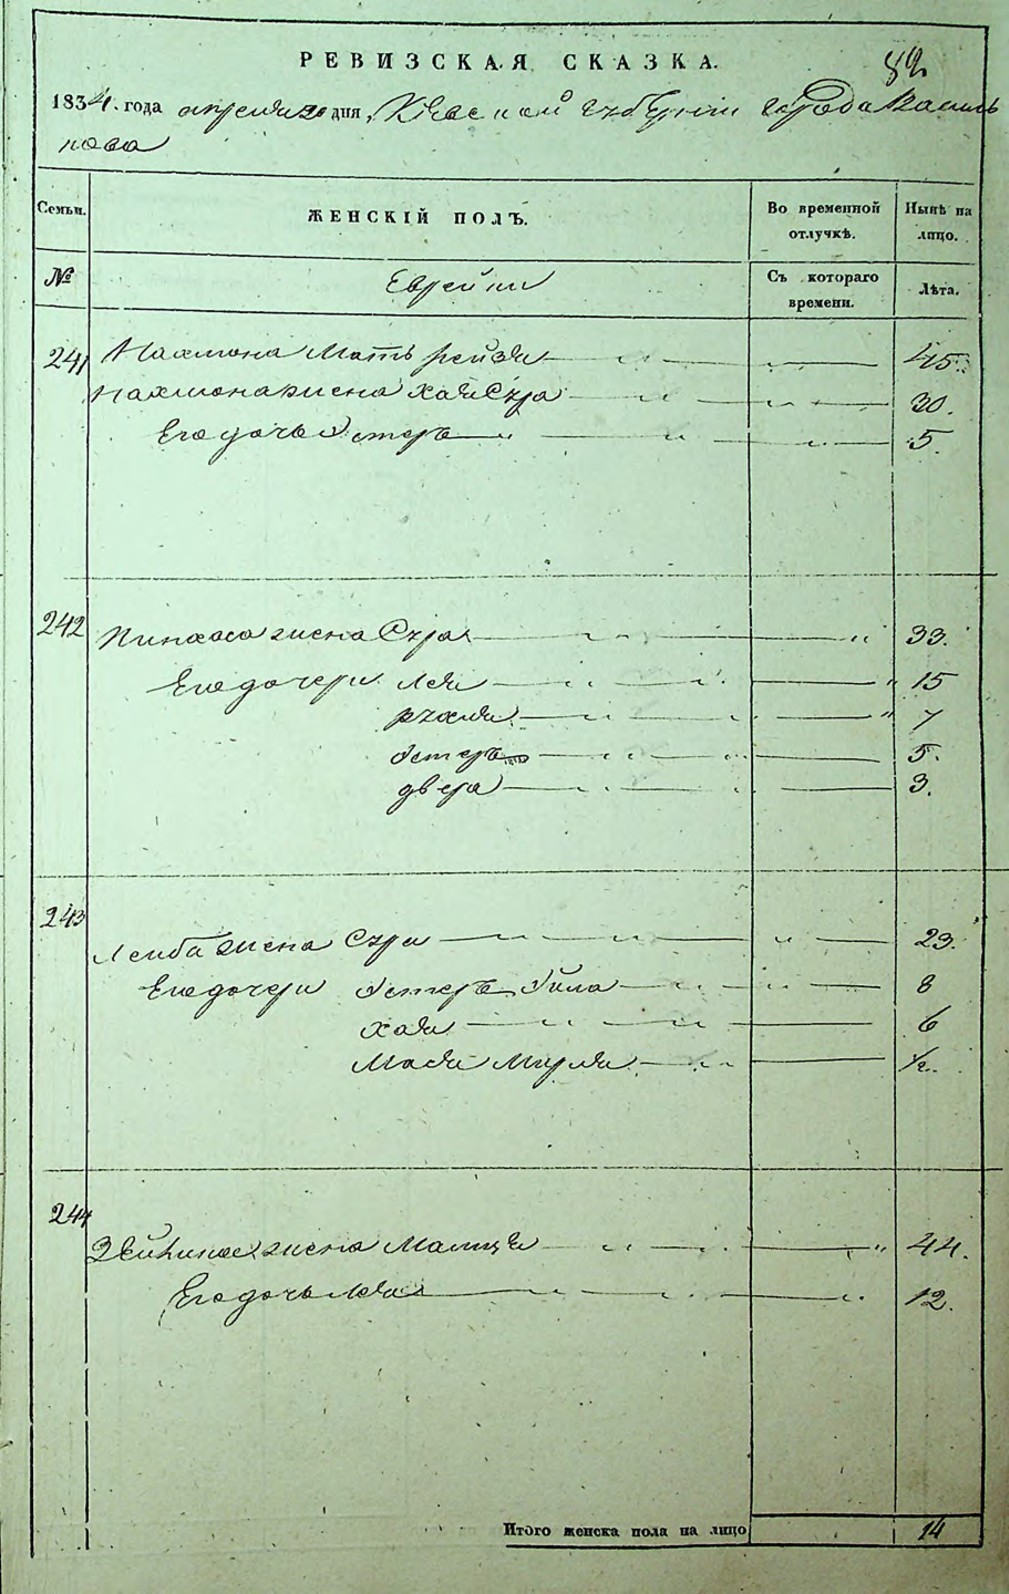 РЕВИЗСКАЯ СКАЗКА.
1834. года апреля 20 дня, Киевской губернии города Василь
кова
Семьи.
ЖЕНСКІЙ ПОЛЪ.
Во временной отлучкѣ.
Нынѣ на лицо.
№
Еврейки
Съ котораго времени.
Лѣта.
241 Нахмона Мать рейзя 45.
Нахмона жена Хая Сура 30.
Его дочь Эстеръ 5.
242 Пинхаса жена Сура 33.
Его дочери Лея 15
рухля 7
Эстеръ 5.
двера 3.
243
Лейба жена Сура 23.
Его дочери Эстеръ 8
Хая 6
Мася Мирля 1/2.
244
жена Малця 44.
Его дочь Лея 12.
Итого женска пола на лицо 14